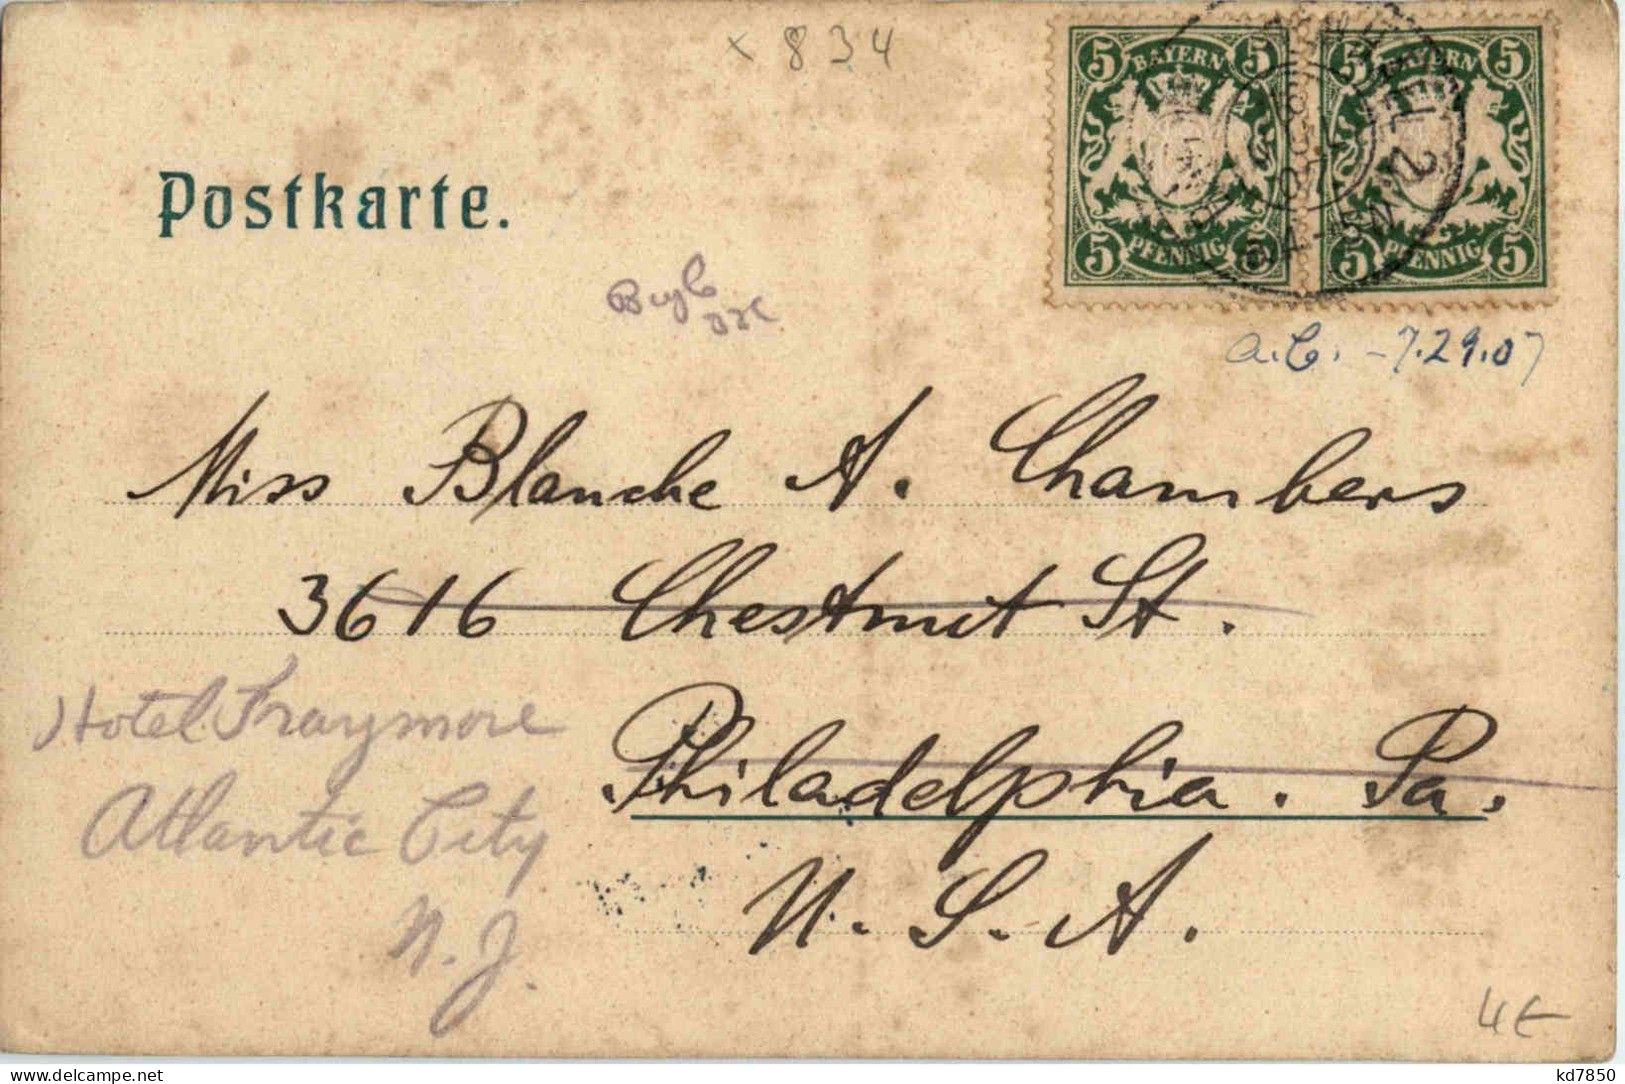 x 834
5 BAYERN 5
5 PFENNIG 5
5 BAYERN 5
5 PFENNIG 5
Postkarte.
a.C. - 7.29.07
Miss Blanche A. Chambers
3616 Chestnut St.
Hotel Traymore
Philadelphia. Pa.
Atlantic City
U. S. A.
N. J.
4€
www.delcampe.net
kd7850